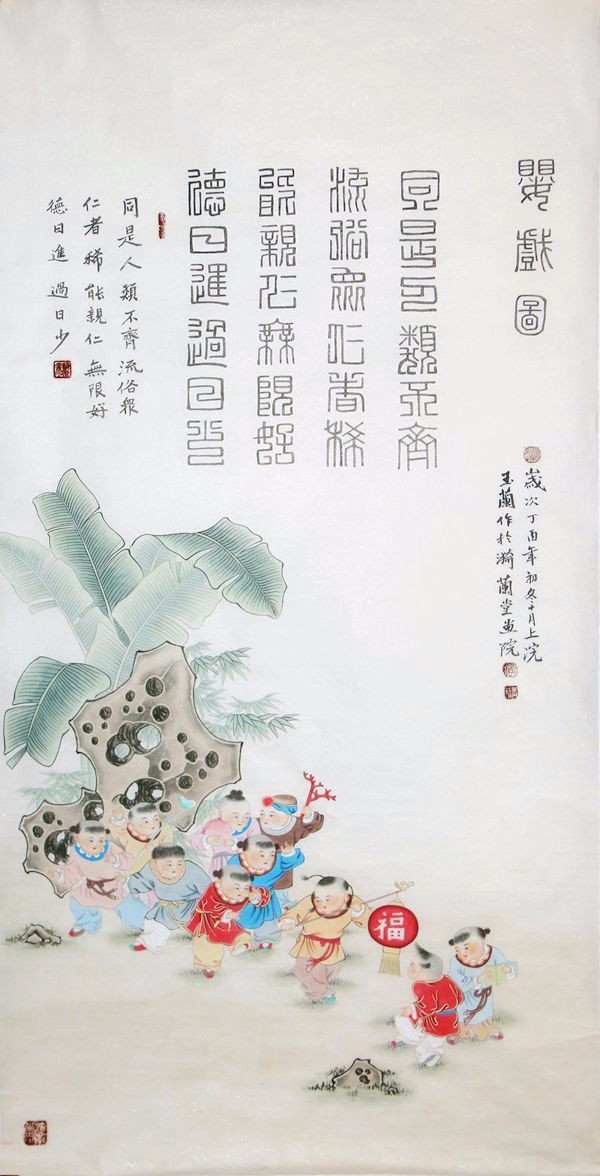 嬰戲圖
歲次丁酉年初冬十月上浣
玉蘭作於漪蘭堂畫院
同是人類不齊
流俗眾仁者稀
能親仁無限好
德日進過日少
同是人類不齊 流俗衆
仁者稀 能親仁 無限好
德日進 過日少
福